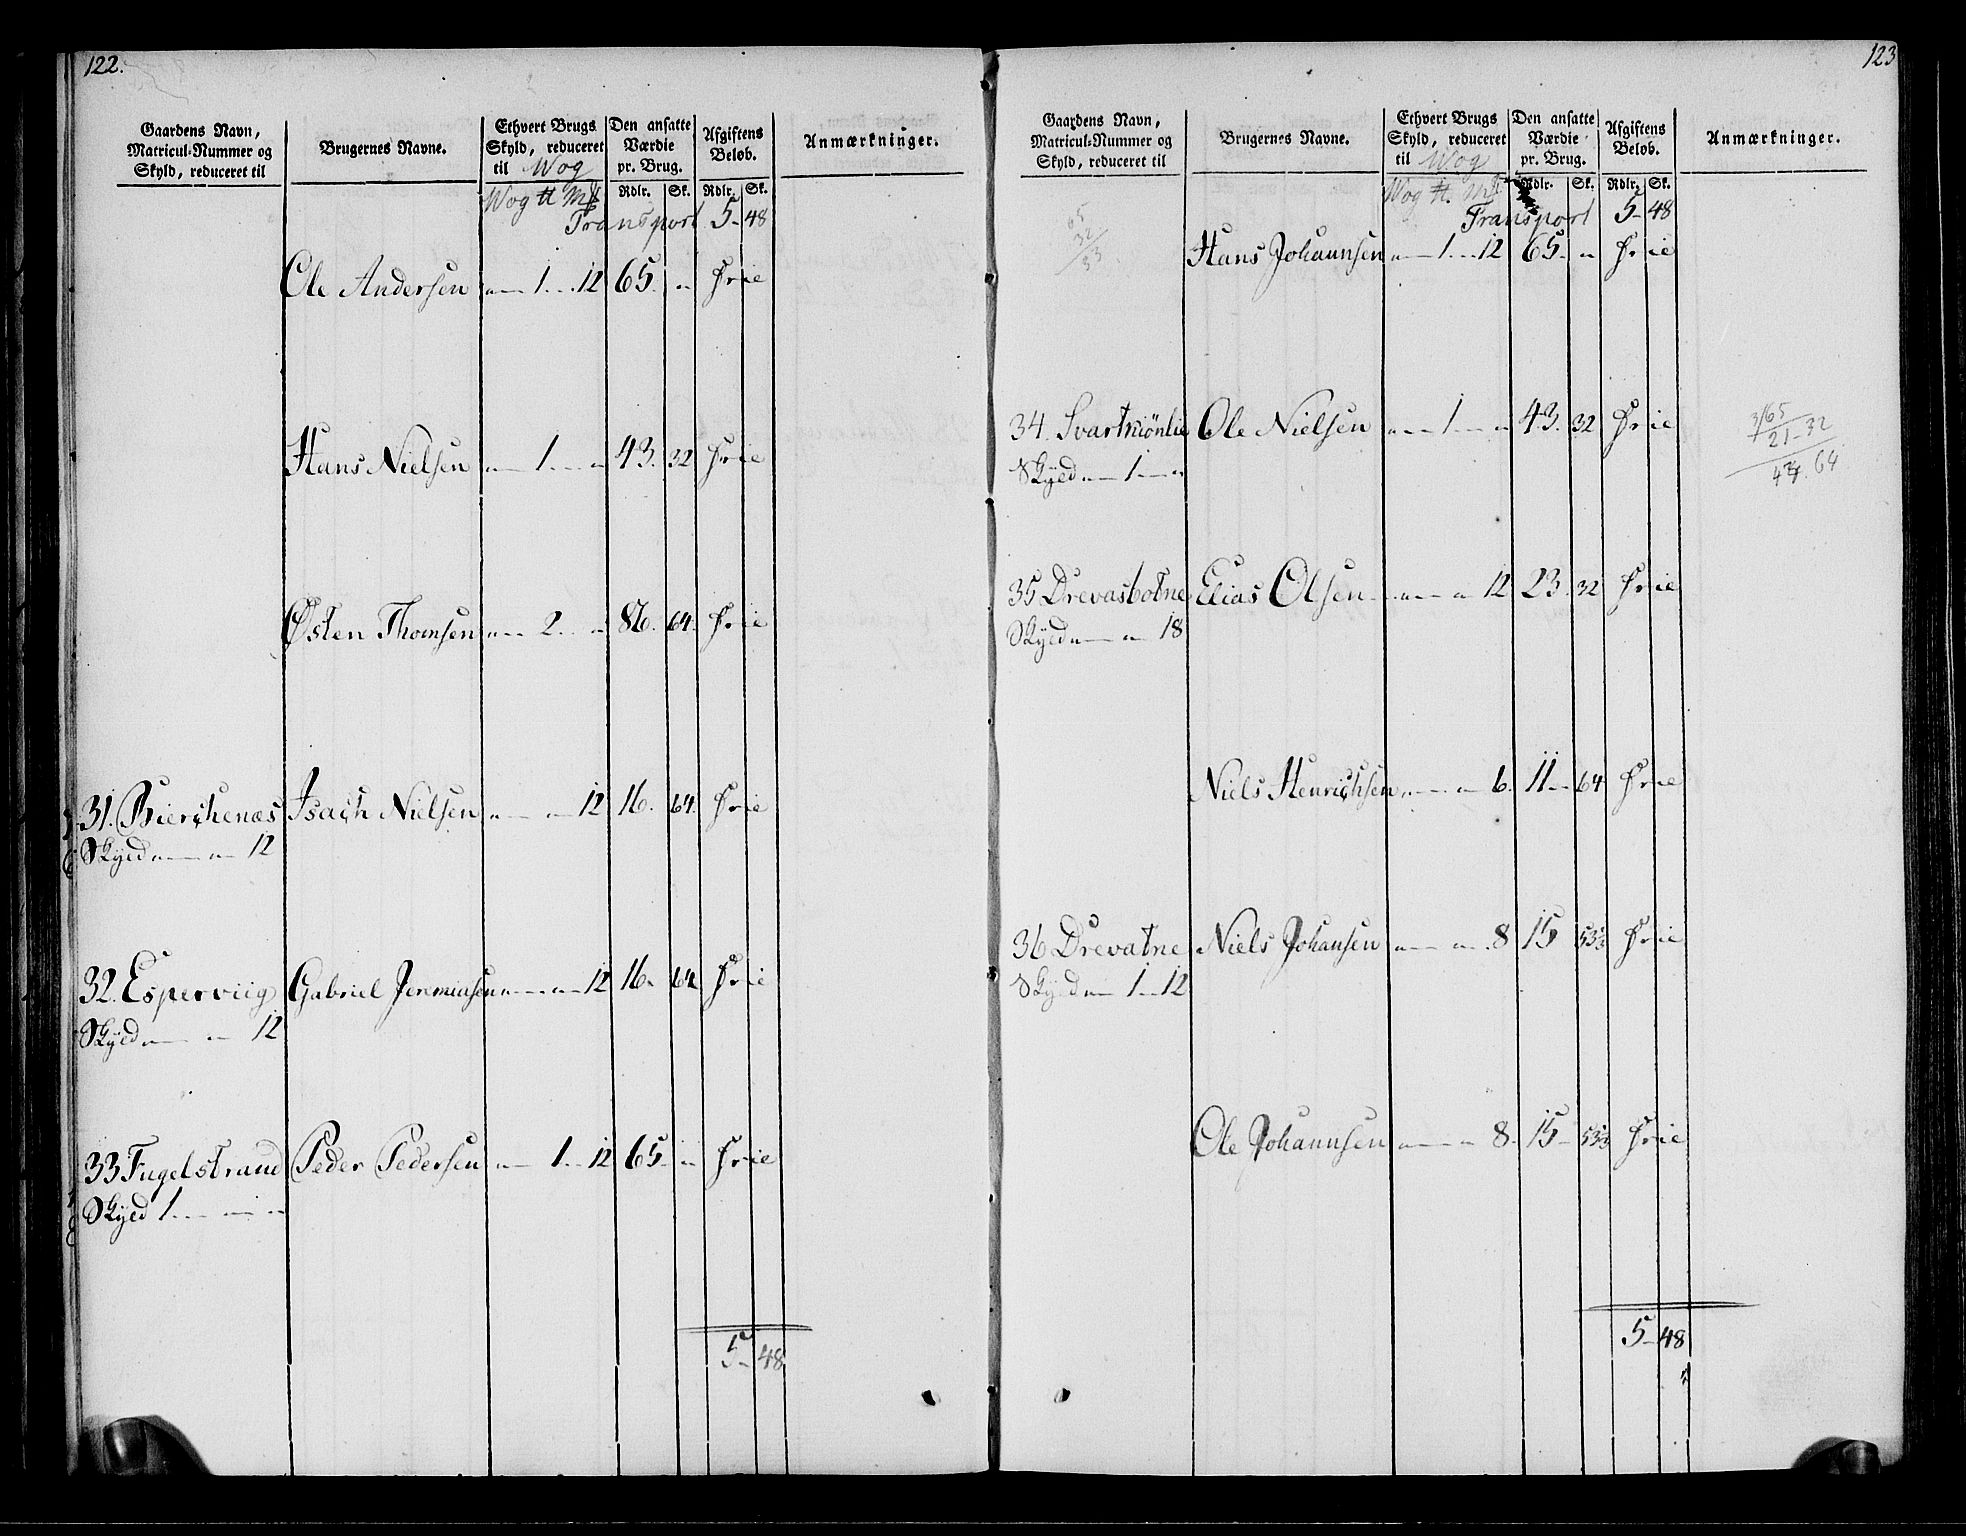 122.
Gaardens Navn, Matricul-Nummer og Skyld, reduceret til
Brugernes Navne.
Ethvert Brugs Skyld, reduceret til Wog
Den ansatte Værdie pr. Brug.
Afgiftens Beløb.
Anmærkninger.
Wog ℔ Mk Rdlr. Sk. Rdlr. Sk.
Transport 5 - 48
Ole Andersen „ - 1 - 12 65. „ Frie
Hans Nielsen „ - 1 - „ 43. 32 Frie
Østen Thomsen „ - 2 - „ 86. 64. Frie
31. Bierchenæs Isach Nielsen „ - „ - 12 16. 64. Frie
Skyld „ - „ - 12
32. Esperviig Gabriel Jeremiasen „ - „ - 12 16. 64 Frie
Skyld „ - „ - 12
33 Fugelstrand Peder Pedersen „ - 1 - 12 65. „ Frie
Skyld 1 - „ - „
5 - 48
123
Gaardens Navn, Matricul-Nummer og Skyld, reduceret til
Brugernes Navne.
Ethvert Brugs Skyld, reduceret til Wog
Den ansatte Værdie pr. Brug.
Afgiftens Beløb.
Anmærkninger.
Wog ℔. Mk Rdlr. Sk. Rdlr. Sk.
Transport 5 - 48
65
32
33
Hans Johannsen „ - 1 - 12 65. „ Frie
34. Svartmönlie Ole Nielsen „ - 1 - „ 43. 32 Frie
Skyld „ - 1 - „
3/65
21 - 32
43. 64
35 Drevasbotne Elias Olsen „ - „ - 12 23. 32 Frie
Skyld „ - „ - 18
Niels Henrichsen „ - „ - 6. 11 - 64 Frie
36 Drevatne Niels Johansen „ - „ - 8 15 53⅓ Frie
Skyld „ - 1 - 12
Ole Johannsen „ - „ - 8. 15 - 53⅓ Frie
5 - 48